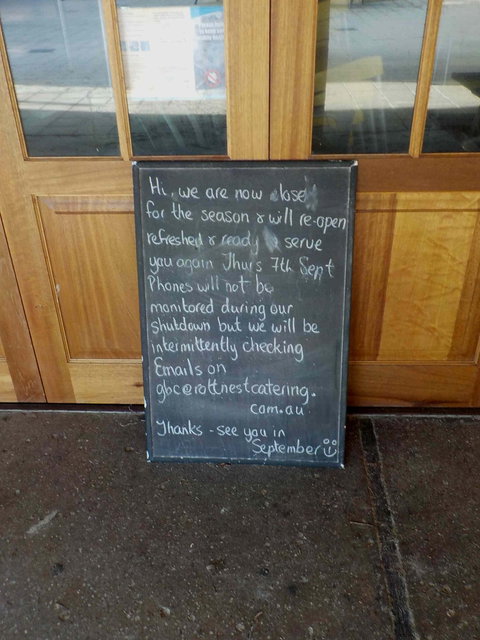 Hi, we are now close
for the season & will re-open
refreshed & ready to serve
you again Thurs 7th Sept
Phones will not be
monitored during our
shutdown but we will be
intermittently checking
Emails on
gbc@rottnestcatering.
com.au
Thanks - see you in
September